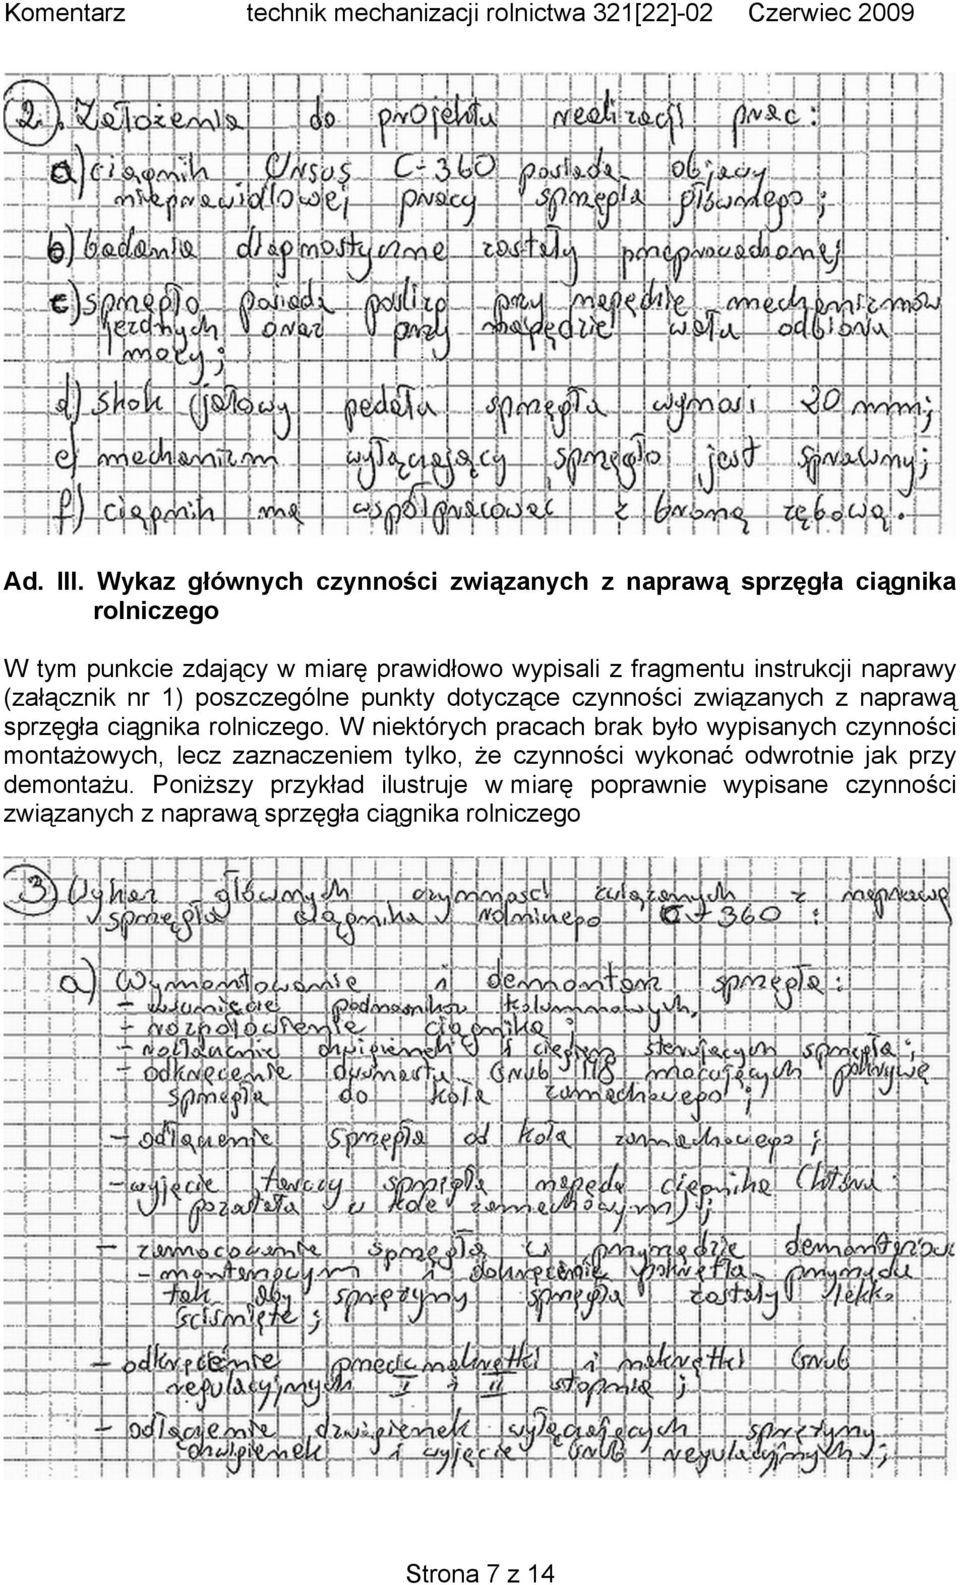 Komentarz technik mechanizacji rolnictwa 321[22]-02 Czerwiec 2009
2. Założenia do projektu realizacji prac:
a) ciągnik Ursus C-360 posiada objawy
nieprawidłowej pracy sprzęgła głównego;
b) badania diagnostyczne zostały przeprowadzone;
c) sprzęgło posiada poślizg przy napędzie mechanizmów
jezdnych oraz przy napędzie wału odbioru
mocy;
d) skok jałowy pedału sprzęgła wynosi 20 mm;
e) mechanizm wyłączający sprzęgło jest sprawny;
f) ciągnik ma współpracować z broną zębową.
Ad. III. Wykaz głównych czynności związanych z naprawą sprzęgła ciągnika
rolniczego
W tym punkcie zdający w miarę prawidłowo wypisali z fragmentu instrukcji naprawy
(załącznik nr 1) poszczególne punkty dotyczące czynności związanych z naprawą
sprzęgła ciągnika rolniczego. W niektórych pracach brak było wypisanych czynności
montażowych, lecz zaznaczeniem tylko, że czynności wykonać odwrotnie jak przy
demontażu. Poniższy przykład ilustruje w miarę poprawnie wypisane czynności
związanych z naprawą sprzęgła ciągnika rolniczego
3) Wykaz głównych czynności związanych z naprawą
sprzęgła ciągnika rolniczego C-360:
a) Wymontowanie i demontaż sprzęgła:
- usunięcie podnośników kolumnowych,
- rozpołowienie ciągnika;
- rozłączenie dźwigienek i cięgien sterujących sprzęgła;
- odkręcenie dwunastu śrub M8 mocujących pokrywę
sprzęgła do koła zamachowego;
- odłączenie sprzęgła od koła zamachowego;
- wyjęcie tarczy sprzęgła napędu ciągnika (która
pozostała w kole zamachowym);
- zamocowanie sprzęgła w przyrządzie demontażowo
- montażowym i dokręcenie pokrętła przyrządu
tak aby sprężyny sprzęgła zostały lekko
ściśnięte;
- odkręcenie przeciwnakrętki i nakrętki śrub
regulacyjnych I i II stopnia;
- odłączenie dźwigienek wyłączających, sprężyny
dźwigienek i wyjęcie śrub regulacyjnych;
Strona 7 z 14